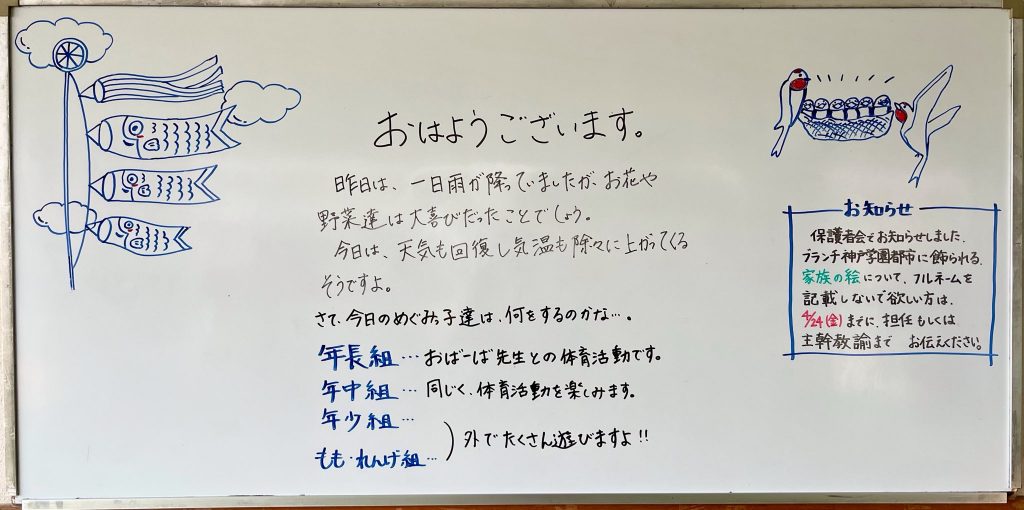 おはようございます。
昨日は、一日雨が降っていましたが、お花や
野菜達は大喜びだったことでしょう。
今日は、天気も回復し気温も除々に上がってくる
そうですよ。
さて、今日のめぐみっ子達は、何をするのかな…。
年長組…おばーば先生との体育活動です。
年中組…同じく、体育活動を楽しみます。
年少組…
もも・れんげ組…
)外でたくさん遊びますよ!!
お知らせ
保護者会でお知らせしました、
ブランチ神戸学園都市に飾られる、
家族の絵について、フルネームを
記載しないで欲しい方は、
4/24(金)までに、担任もしくは
主幹教諭まで お伝えください。